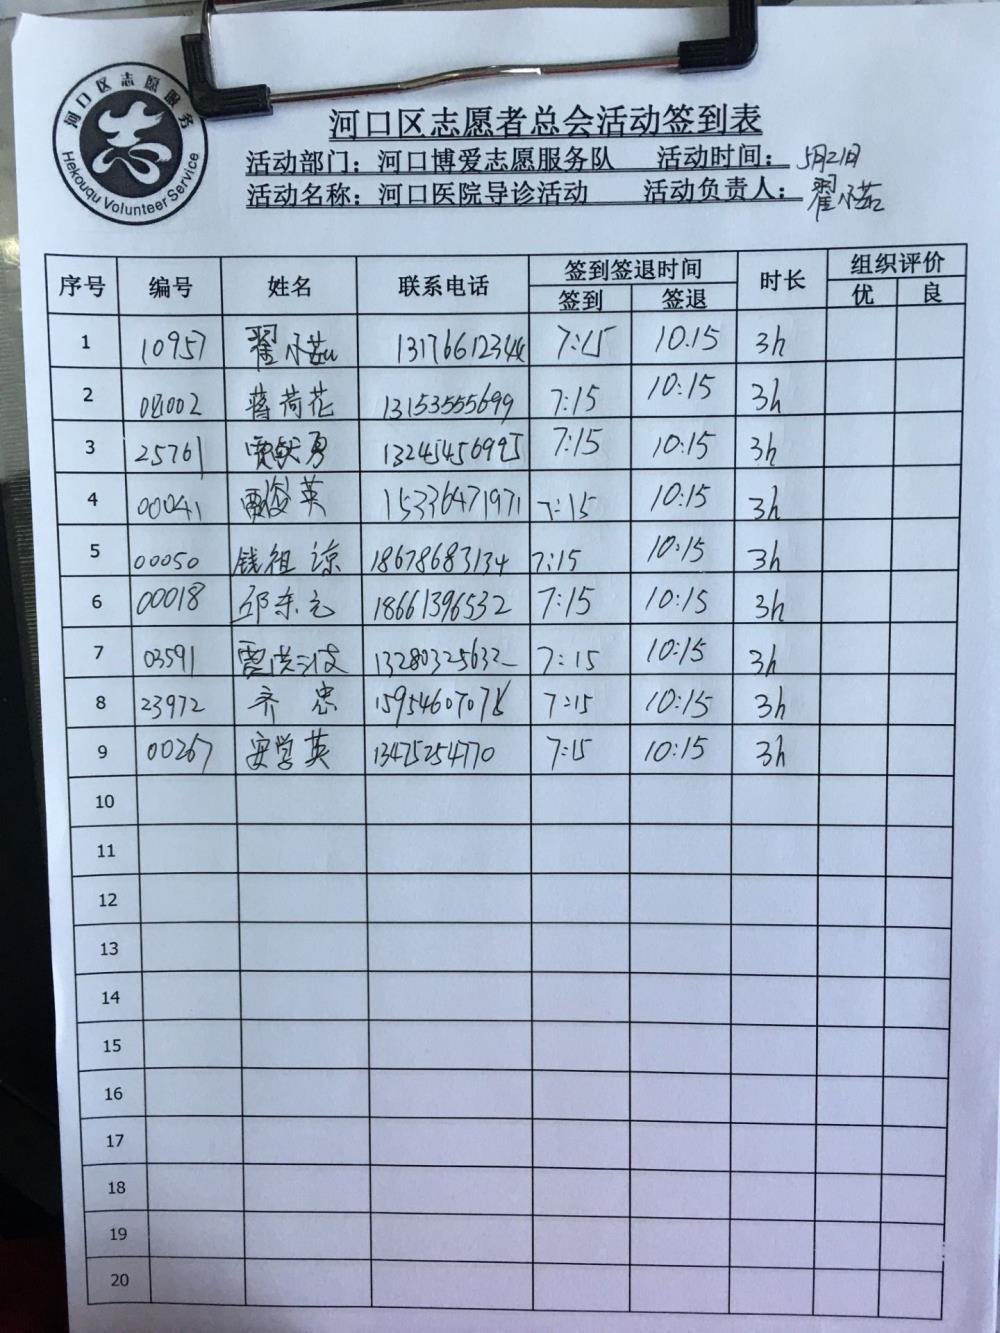 河口区志愿服务
Hekouqu Volunteer Service
河口区志愿者总会活动签到表
活动部门：河口博爱志愿服务队 活动时间：5月21日
活动名称：河口医院导诊活动 活动负责人：翟小茹
序号 编号 姓名 联系电话 签到签退时间 时长 组织评价
签到 签退 优 良
1 10957 翟小茹 13176612344 7:15 10.15 3h
2 荷花 13153555699 7:15 10:15 3h
3 25761 勇 13245456995 7:15 10:15 3h
4 00041 英 15336471971 7:15 10:15 3h
5 00050 钱祖谅 18678683134 7:15 10:15 3h
6 00018 邱东元 18661396532 7:15 10:15 3h
7 03591 贾洪波 13280325632 7:15 10:15 3h
8 23972 齐忠 7:15 10:15 3h
9 00267 安学英 13475254770 7:15 10:15 3h
10
11
12
13
14
15
16
17
18
19
20